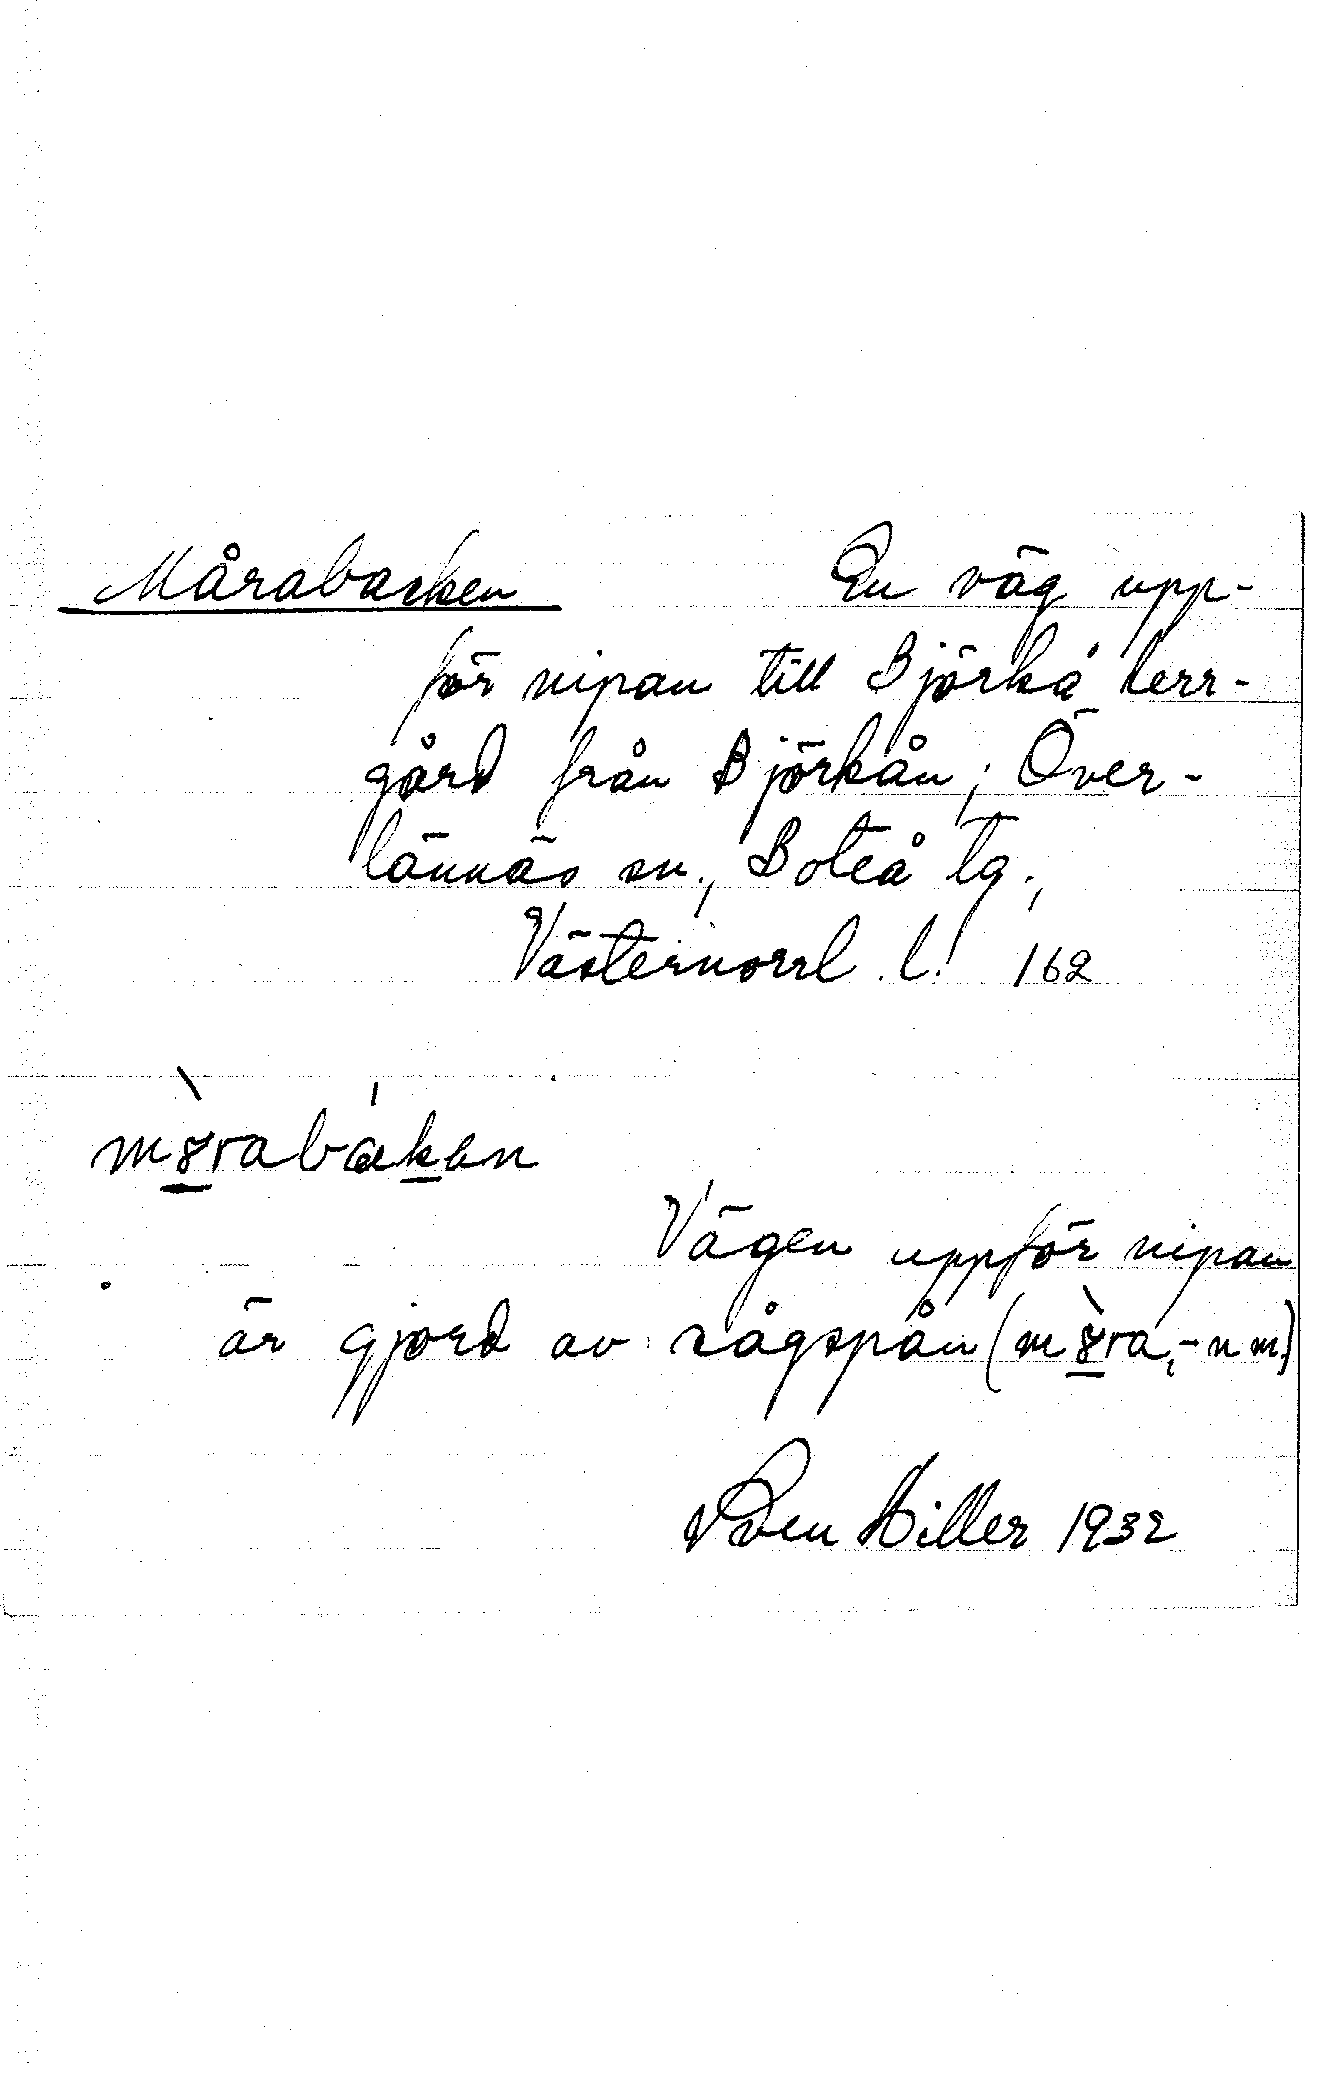 Mårabacken En väg upp-
för nipan till Björkå herr-
gård från Björkån; Över-
lännäs sn., Boteå tg.,
Västernorrl. l. 162
m8̀rabákan
Vägen uppför nipan
är gjord av sågspån (m8̀ra, -n m.)
Sven Hiller 1932